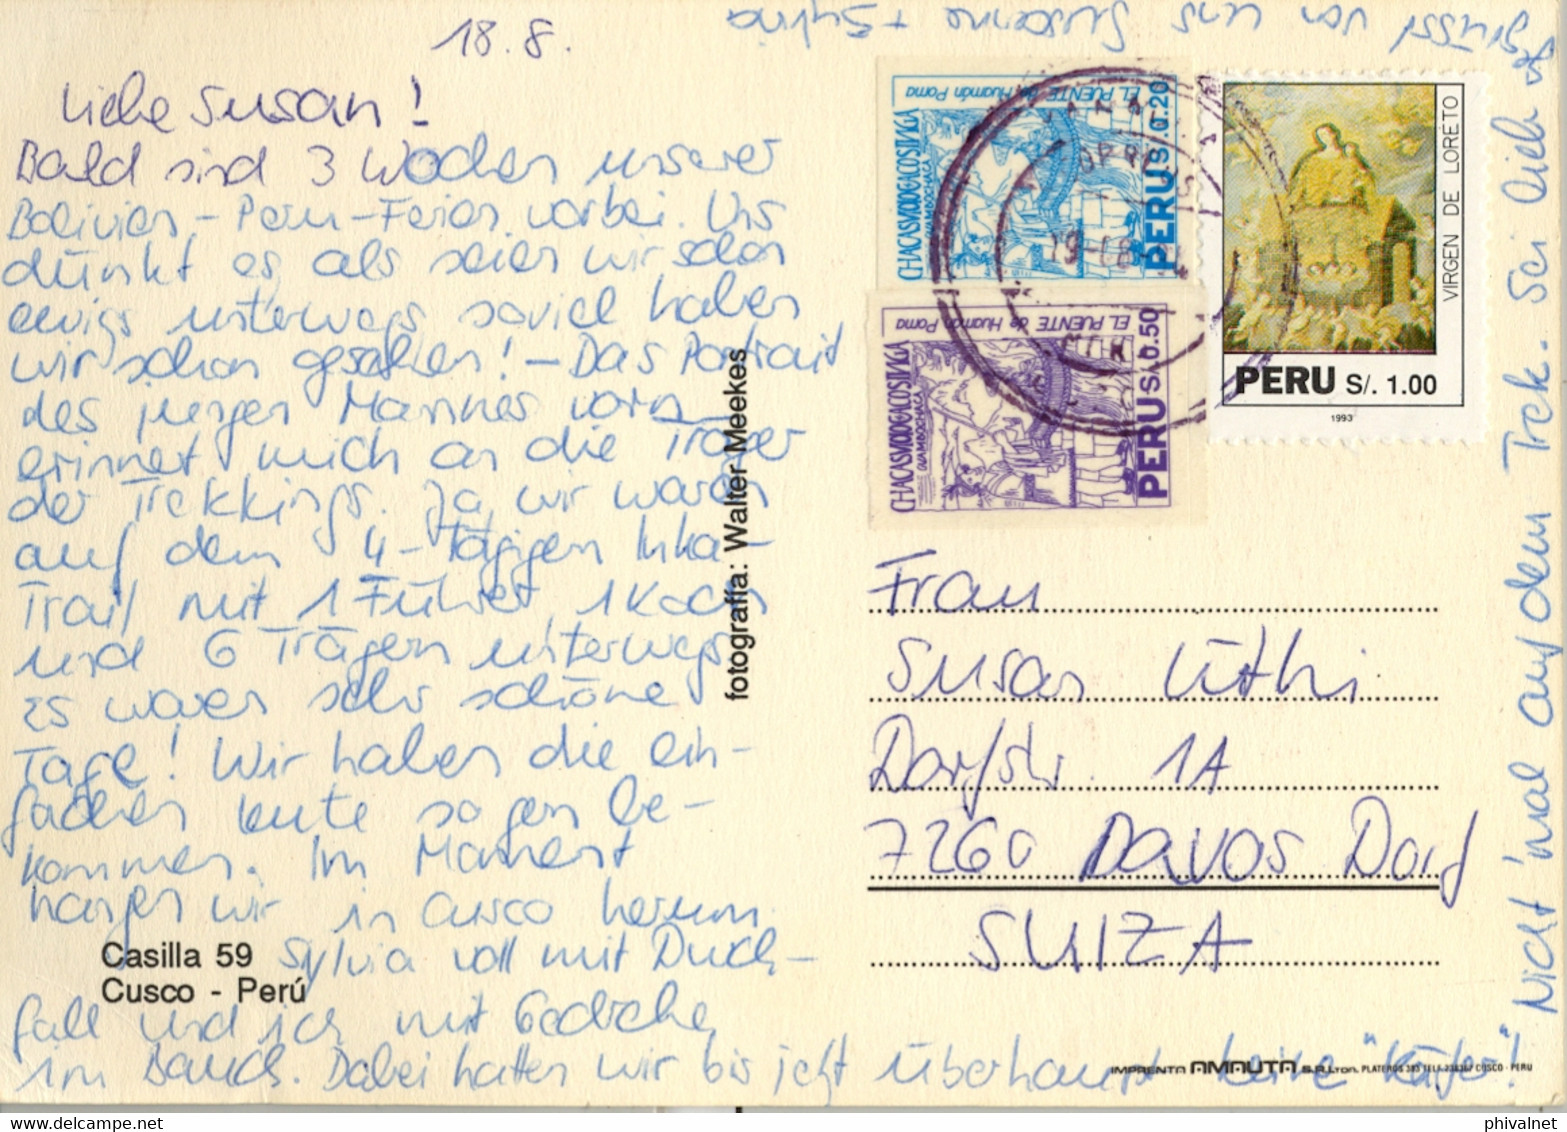 18.8.
Liebe Susan!
Bald sind 3 Wochen unserer
Bolivien-Peru-Ferien vorbei. Uns
dünkt es als seien wir schon
ewigs unterwegs soviel haben
wir schon gesehen! - Das Portrait
des jungen Mannes vorn
erinnert mich an die Träger
der Trekkings. Ja, wir waren
auf dem 4-tägigen Inka-
Trail mit 1 Führer, 1 Koch
und 6 Trägern unterwegs
Es waren sehr schöne
Tage! Wir haben die ein-
fachen Leute so gern be-
kommen. Im Moment
hangen wir in Cusco herum.
Sylvia voll mit Durch-
fall und ich mit
im Bauch. Dabei hatten wir bis jetzt überhaupt keine "Käfer"!
Nicht 'mal auf dem Trek. Sei lieb
gegrüsst von uns Susanne + Sylvia
Casilla 59
Cusco - Perú
fotografía: Walter Meekes
EL PUENTE de Huamán Poma
CHACASMODOGACOSINGA
GUAMBOCHACA
PERU S/.0.20
EL PUENTE de Huamán Poma
CHACASMODOGACOSINGA
GUAMBOCHACA
PERU S/.0.50
VIRGEN DE LORETO
PERU S/. 1.00
1993
19-08-
Frau
Susan Lüthi
Dorfstr. 1A
7260 Davos Dorf
SUIZA
IMPRENTA AMAUTA S.R.Ltda. PLATEROS 383 TELF. CUSCO - PERU